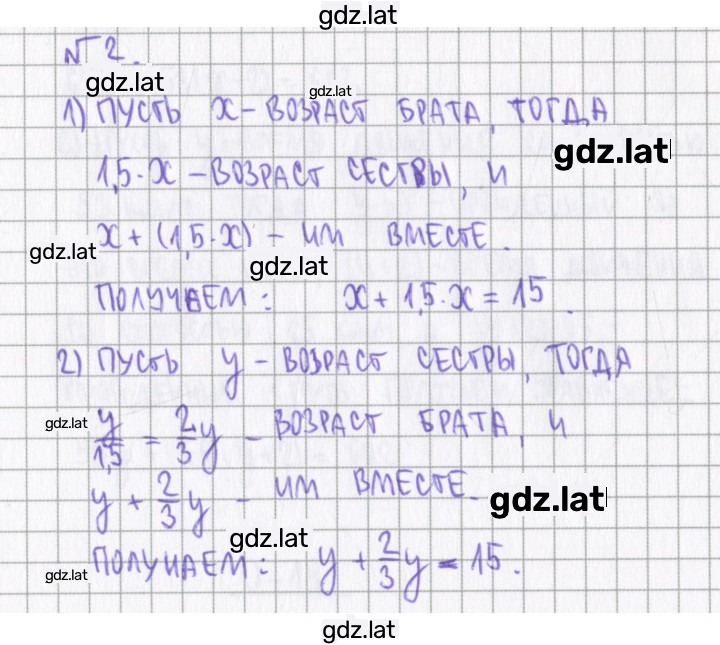 gdz.lat
№ 2.
gdz.lat
gdz.lat
1) ПУСТЬ x – ВОЗРАСТ БРАТА, ТОГДА
gdz.lat
1,5·x – ВОЗРАСТ СЕСТРЫ, И
x + (1,5·x) – ИМ ВМЕСТЕ.
gdz.lat
gdz.lat
ПОЛУЧАЕМ: x + 1,5·x = 15.
2) ПУСТЬ y – ВОЗРАСТ СЕСТРЫ, ТОГДА
gdz.lat
y/1,5 = 2/3 y – ВОЗРАСТ БРАТА, И
y + 2/3 y – ИМ ВМЕСТЕ.
gdz.lat
gdz.lat
ПОЛУЧАЕМ: y + 2/3 y = 15.
gdz.lat
gdz.lat